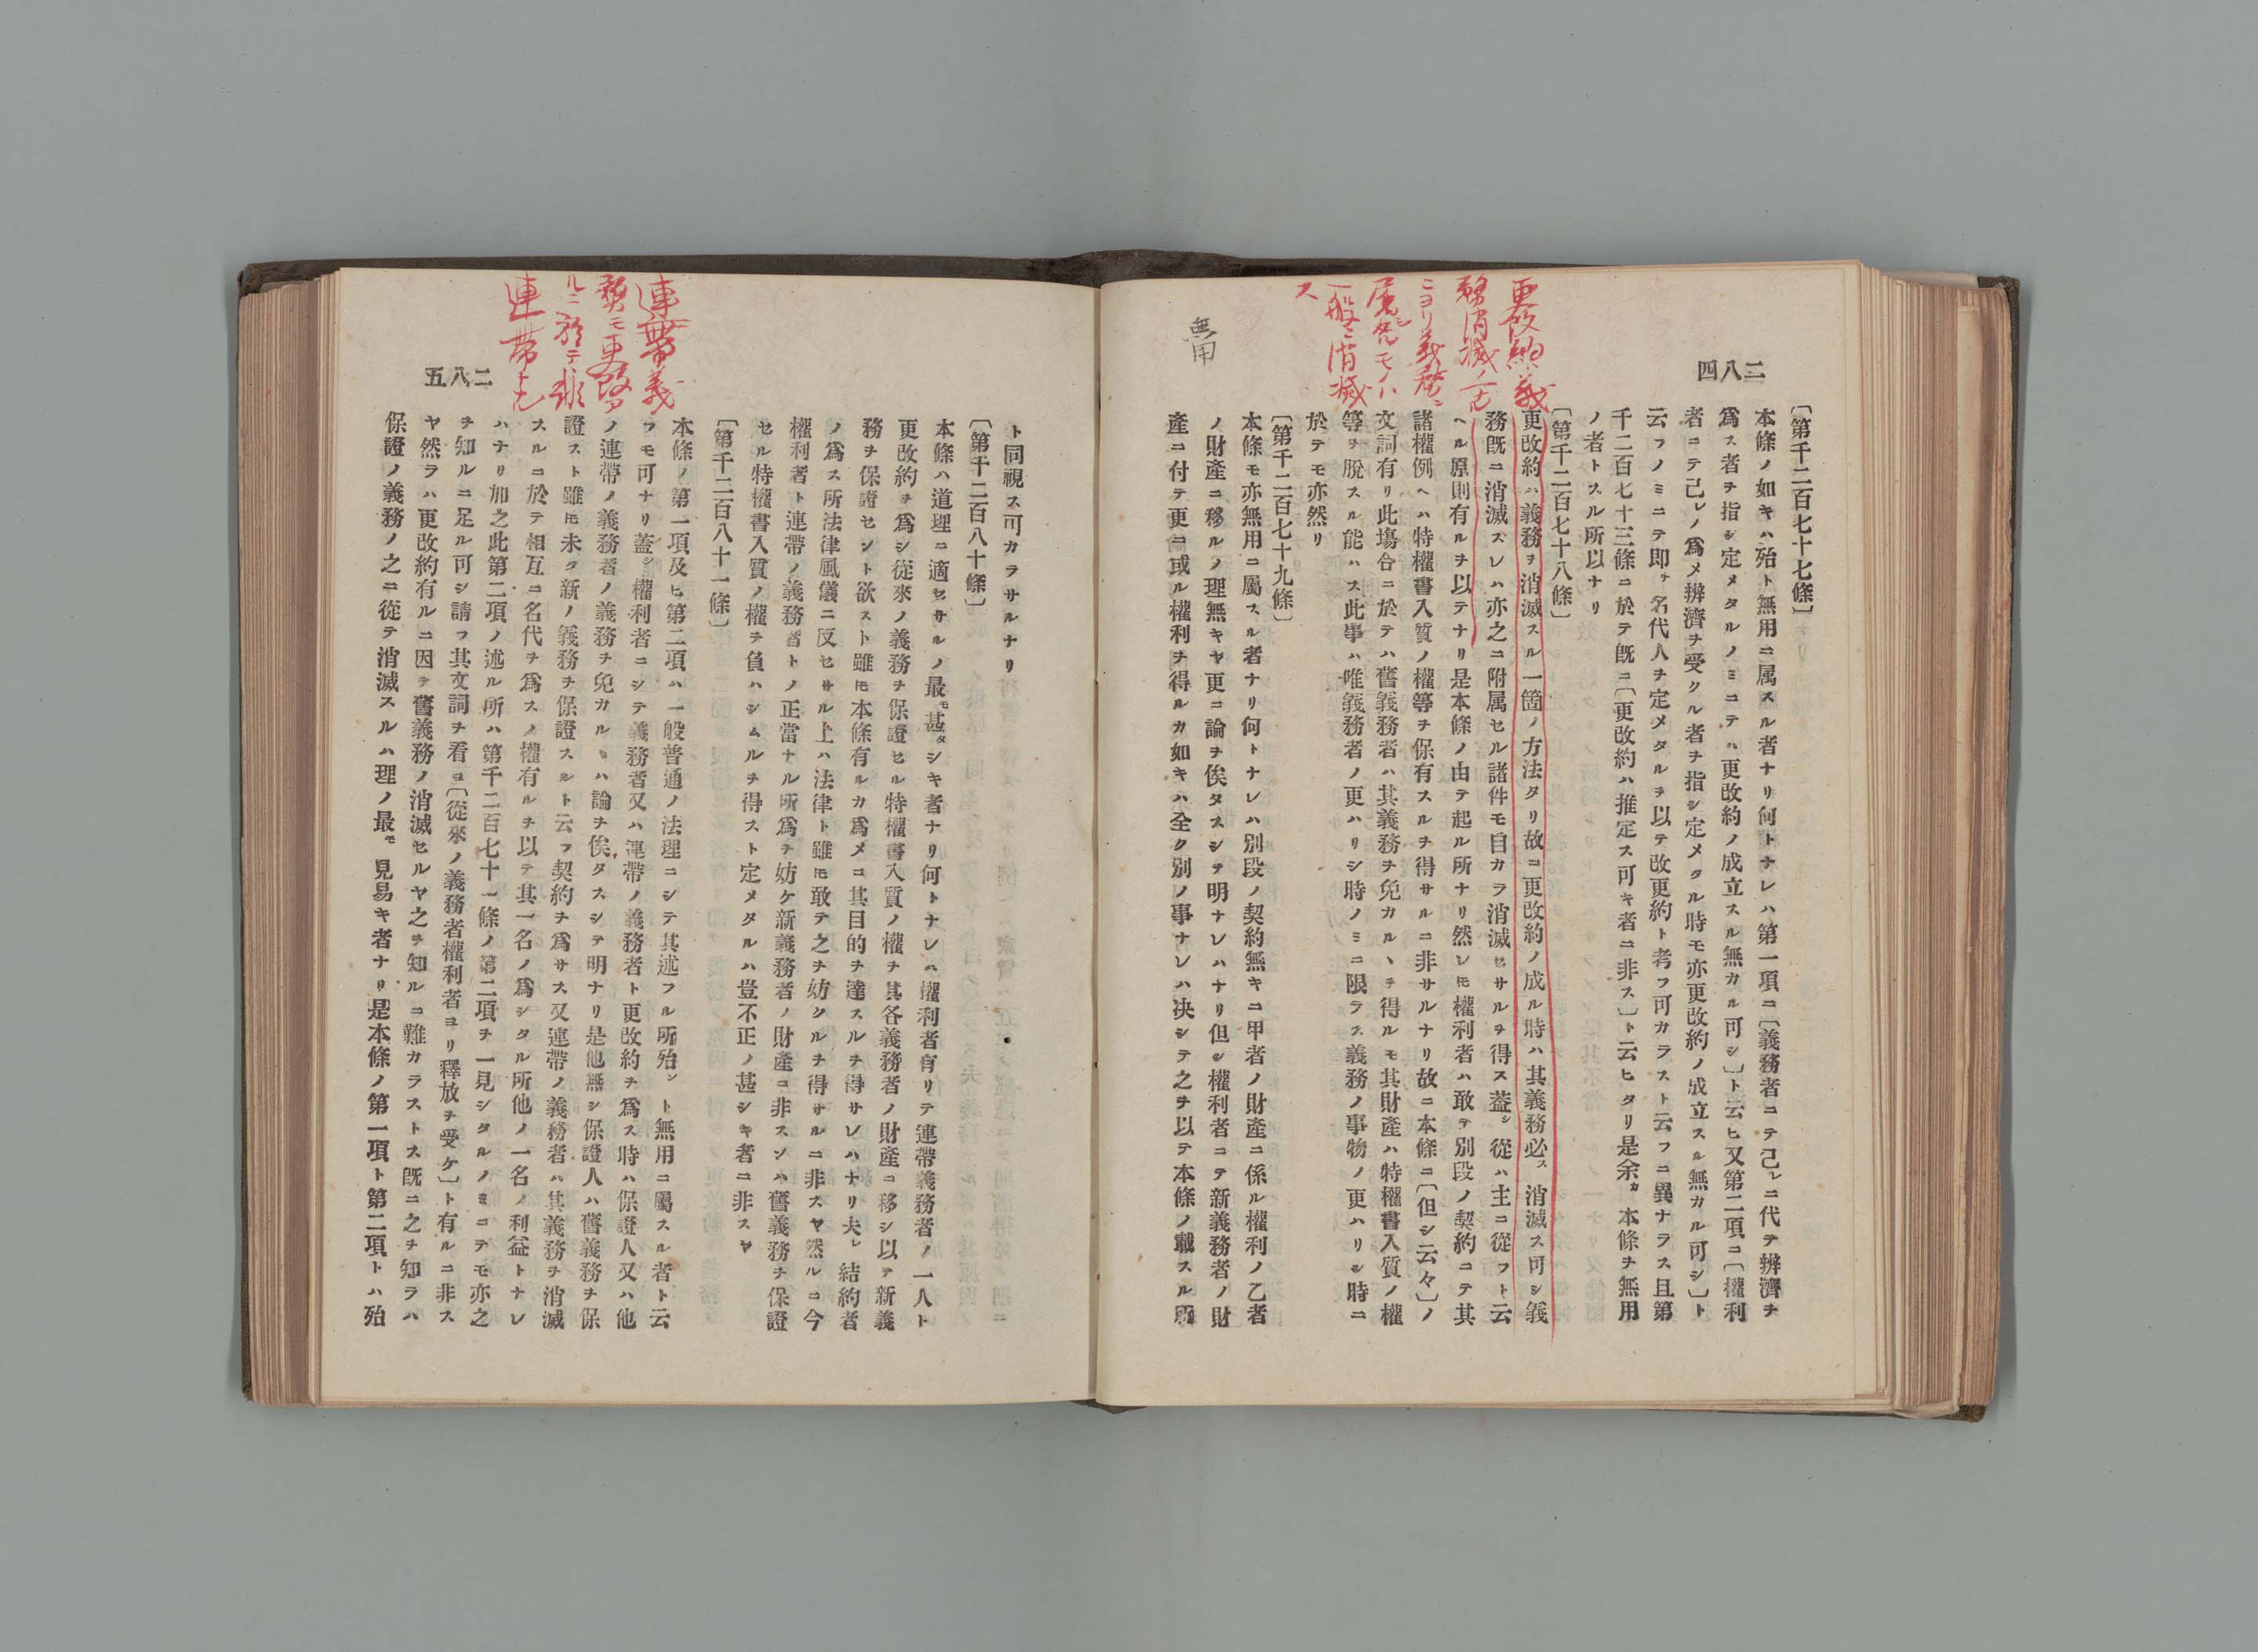 二八四
〔第千二百七十七條〕
本條ノ如キハ殆ト無用ニ属スル者ナリ何トナレハ第一項ニ〔義務者ニテ己レニ代テ辨濟ヲ
爲ス者ヲ指シ定メタルノミニテハ更改約ノ成立スル無カル可シ〕ト云ヒ又第二項ニ〔權利
者ニテ己レノ爲メ辨濟ヲ受クル者ヲ指シ定メタル時モ亦更改約ノ成立スル無カル可シ〕ト
云フノミニテ即チ名代人ヲ定メタルヲ以テ改更約ト考フ可カラスト云フニ異ナラス且第
千二百七十三條ニ於テ既ニ〔更改約ハ推定ス可キ者ニ非ス〕ト云ヒタリ是余カ本條ヲ無用
ノ者トスル所以ナリ
〔第千二百七十八條〕
更改約ハ義務ヲ消滅スル一箇ノ方法タリ故ニ更改約ノ成ル時ハ其義務必ス消滅ス可シ義
務既ニ消滅スレハ亦之ニ附属セル諸件モ自カラ消滅セサルヲ得ス蓋シ從ハ主ニ從フト云
ヘル原則有ルヲ以テナリ是本條ノ由テ起ル所ナリ然レ𪜈權利者ハ敢テ別段ノ契約ニテ其
諸權例ヘハ特權書入質ノ權等ヲ保有スルヲ得サルニ非サルナリ故ニ本條ニ〔但シ云々〕ノ
文詞有リ此塲合ニ於テハ舊義務者ハ其義務ヲ免カルヽヲ得ルモ其財產ハ特權書入質ノ權
等ヲ脫スル能ハス此事ハ唯義務者ノ更ハリシ時ノミニ限ラス義務ノ事物ノ更ハリシ時ニ
於テモ亦然リ
〔第千二百七十九條〕
本條モ亦無用ニ屬スル者ナリ何トナレハ別段ノ契約無キニ甲者ノ財產ニ係ル權利ノ乙者
ノ財產ニ移ルノ理無キヤ更ニ論ヲ俟タスシテ明ナレハナリ但シ權利者ニテ新義務者ノ財
產ニ付テ更ニ或ル權利ヲ得ルカ如キハ全ク別ノ事ナレハ决シテ之ヲ以テ本條ノ載スル所
更改約ハ義
務消滅ノ一ナル
ニヨリ義務ニ
属シタルモノハ
一般ニ消滅
ス
無用
二八五
ト同視ス可カラサルナリ
〔第千二百八十條〕
本條ハ道理ニ適セサルノ最モ甚タシキ者ナリ何トナレハ權利者有リテ連帶義務者ノ一人ト
更改約ヲ爲シ從來ノ義務ヲ保證セル特權書入質ノ權ヲ其各義務者ノ財產ニ移シ以テ新義
務ヲ保證セント欲スト雖𪜈本條有ルカ爲メニ其目的ヲ達スルヲ得サレハナリ夫レ結約者
ノ爲ス所法律風儀ニ反セサル上ハ法律ト雖𪜈敢テ之ヲ妨クルヲ得サルニ非スヤ然ルニ今
權利者ト連帶ノ義務者トノ正當ナル所爲ヲ妨ケ新義務者ノ財產ニ非スンハ舊義務ヲ保證
セル特權書入質ノ權ヲ負ハシムルヲ得スト定メタルハ豈不正ノ甚シキ者ニ非スヤ
〔第千二百八十一條〕
本條ノ第一項及ヒ第二項ハ一般普通ノ法理ニシテ其述フル所殆ント無用ニ屬スル者ト云
フモ可ナリ蓋シ權利者ニシテ義務者又ハ連帶ノ義務者ト更改約ヲ爲ス時ハ保證人又ハ他
ノ連帶ノ義務者ノ義務ヲ免カルヽハ論ヲ俟タスシテ明ナリ是他無シ保證人ハ舊義務ヲ保
證スト雖𪜈未タ新ノ義務ヲ保證スルト云フ契約ヲ爲サス又連帶ノ義務者ハ其義務ヲ消滅
スルニ於テ相互ニ名代ヲ爲スノ權有ルヲ以テ其一名ノ爲シタル所他ノ一名ノ利益トナレ
ハナリ加之此第二項ノ述ル所ハ第千二百七十一條ノ第二項ヲ一見シタルノミニテモ亦之
ヲ知ルニ足ル可シ請フ其文詞ヲ看ヨ〔從來ノ義務者權利者ヨリ釋放ヲ受ケ〕ト有ルニ非ス
ヤ然ラハ更改約有ルニ因テ舊義務ノ消滅セルヤ之ヲ知ルニ難カラストス既ニ之ヲ知ラハ
保證ノ義務ノ之ニ從テ消滅スルハ理ノ最モ見易キ者ナリ是本條ノ第一項ト第二項トハ殆
連帶義
務モ更改ス
ルニ於テ
連帶